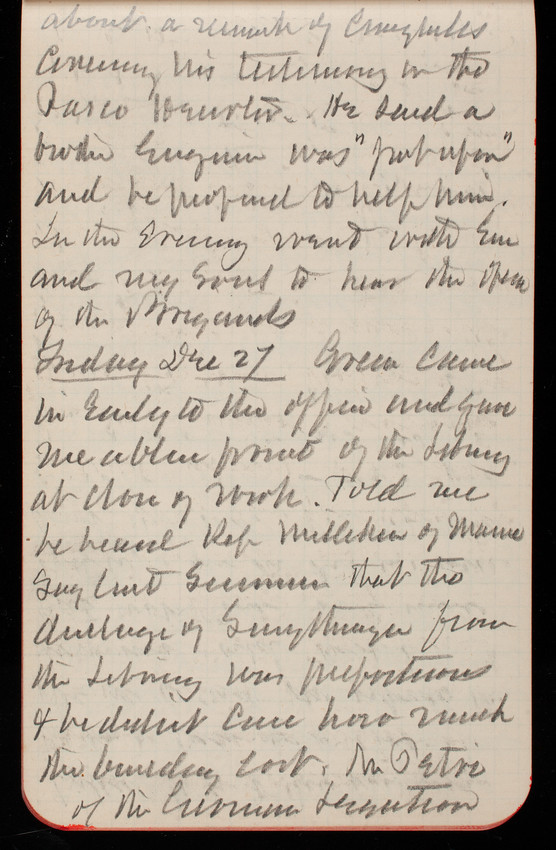 about a remark of
his testimony in the
He said a
brother was "put upon"
and he proposed to help him.
In the Evening went with Em
and my Sons to hear the Opera
of the Brigands
Friday Dec 27 Green came
in Early to the office and gave
me a blue print of the Library
at close of work. Told me
he heard Rep Milliken of Maine
say last Summer that the
of Smithmeyer from
the Library was preposterous
& he didnt care how much
the building cost. Mr Petri
of the German Legation